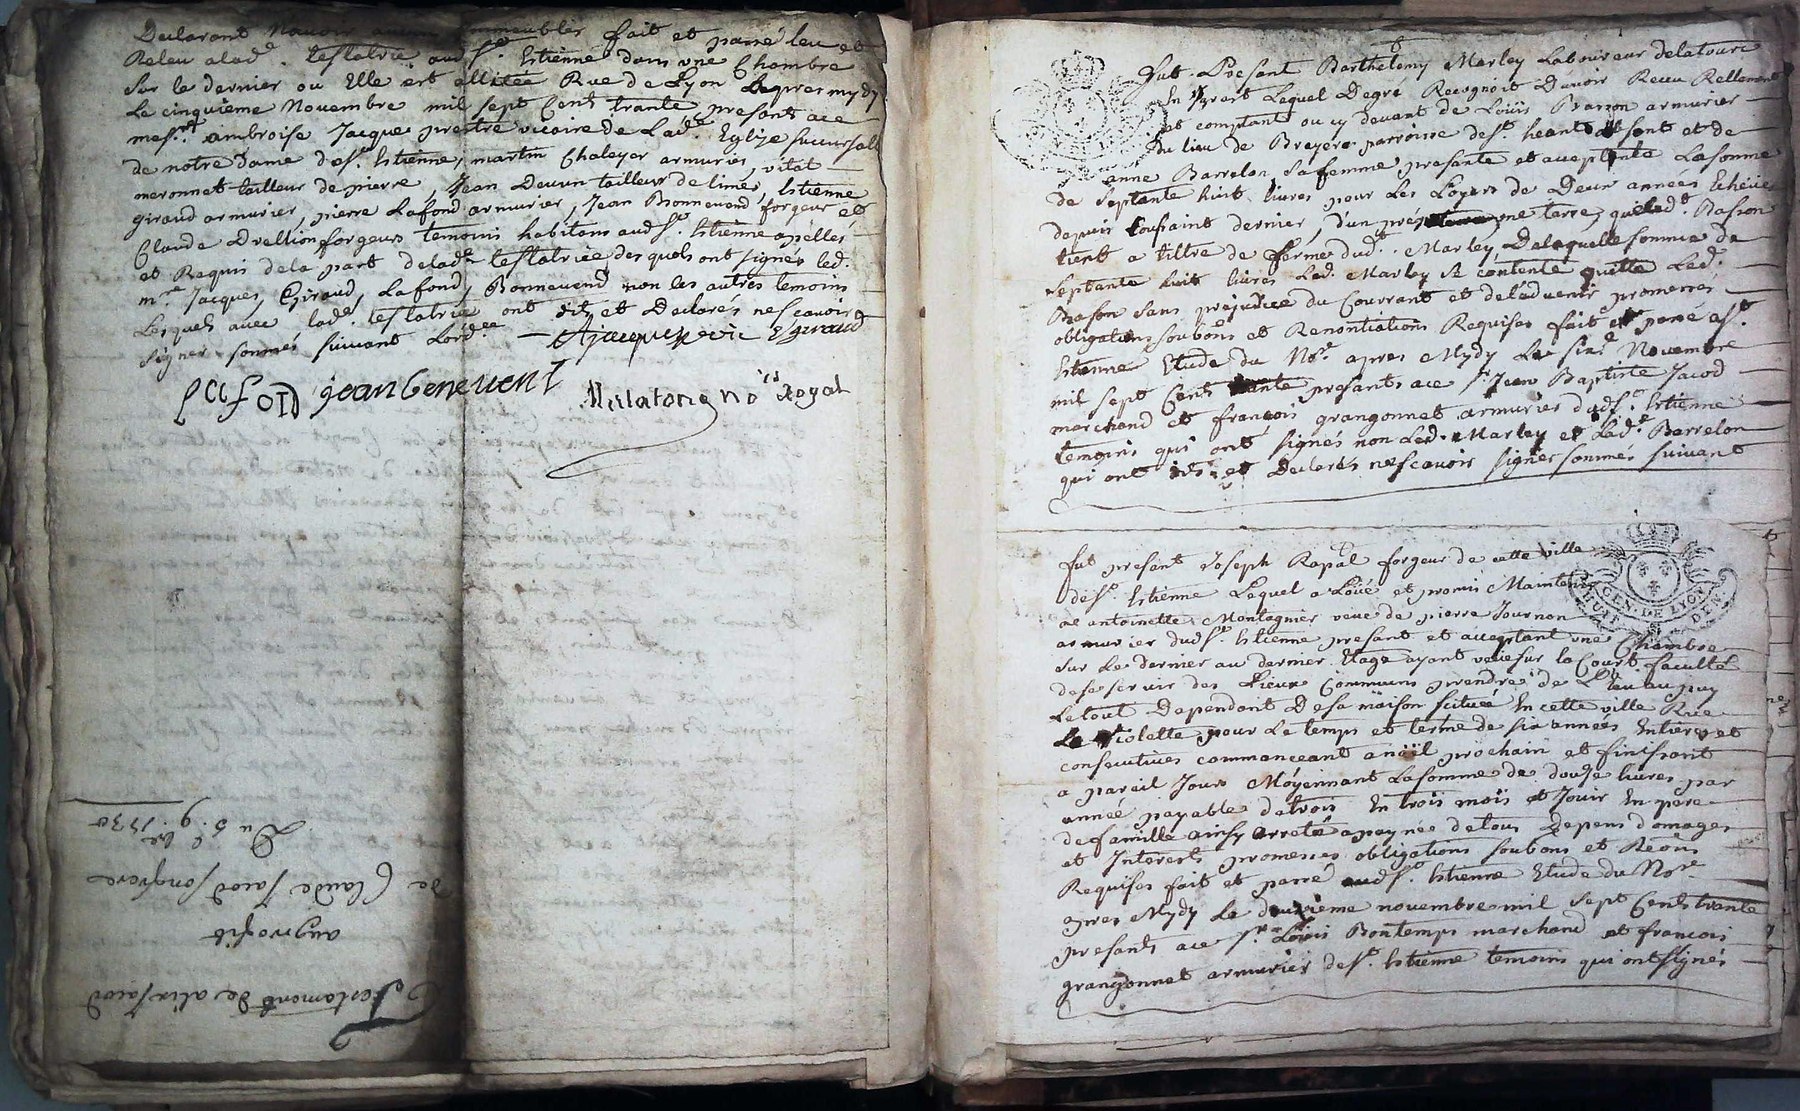 Declarant N'avoir aucuns immeubles fait et passé leu et
Releu a lad.e testatrice aud S.t Estienne dans une Chambre
sur le dernier ou Elle est allitée Rue de Lyon apres mydy
Le cinquieme Novembre mil sept Cents trante presents ace
mess.re ambroise Jacque prestre vicaire de Lad.e Eglise succursalle
de notre dame de S.t Estienne, martin Chaleyer armurier, vital
maronnet tailleur de pierre, Jean Devun tailleur de limes, Estienne
giraud armurier, pierre Lafond armurier, Jean Bonnevend forgeur et
Claude Drellion forgeur temoins habitans aud S.t Estienne apellés
et Requis de la part de lad.e testatrice desquels ont signés led.
m.re Jacques, Giraud, Lafond, Bonnevend non les autres temoins
Lesquels avec lad.e testatrice ont dit et Declarés nescavoir
signer sommés suivant Lord.ce
AJacque vic E giraud
p lafond jean benevent
Mulatong no.re Royal
Testament de alix Jacod
auproffit
de Claude Jacod son frere
Du 5.e 9.bre 1730
Fut Present Barthelemy Marley Laboureur delatour
En Lequel Degré Recognoit Davoir Receu Rellement
et comptant ou cy devant de Loüis Basson armurier
du lieu de Bruyere parroisse de S.t heand absent et de
anne Barrelon, sa femme presante et acceptante Lasomme
de septante huit livres pour Les Loyers de Deux années Echeües
depuis toussaint dernier, d'un pré, une terre, queled.t Basson
tient a tiltre de ferme dud. Marley, Delaquelle somme de
septante huit livres Led. Marley Se contente quitte Led.
Basson sans prejudice du Courrant et deladvenir promesses
obligations soubons et Renontiations Requises fait et passé a S.t
Estienne Etude du No.re apres Mydy Le six.e Novembre
mil sept Cents trante presents ace S.r Jean Baptiste Jacod
marchand et francois grangonnet armurier dud S.t Estienne
temoins qui ont signés non Led. Marley et Lad.e Barrelon
qui ont dits et Declarés nescavoir signer sommés suivant
fut present Joseph Rapal forgeur de cette ville
de S.t Estienne Lequel a Loüé et promis Maintenir
a antoinette Montagnier veuve de pierre Journon
armurier dud S.t Estienne presant et acceptant une Chambre
sur Le dernier au dernier Etage ayant veüe sur la Court faculté
dese servir des Lieux Communs prendre de L'eau au puy
Le tout Dependant De sa maison scituée En cette ville Rue
La violette pour Le temps et terme de six années Entieres et
consecutives commanceant a noël prochain et finissant
a pareil Jour Moÿennant Lasomme de douze livres par
année payables de trois En trois mois et Jouir En pere
de famille ainsy arreté apaynée detous Depens domages
et Interests promesses obligations soubons et Reons
Requises fait et passé aud S.t Estienne Etude du No.re
apres Mydy Le deuxieme novembre mil sept Cents trante
presents ace S.r Loüis Bontemps marchand et francois
grangonnet armurier de S.t Estienne temoins qui ont signés
GEN. DE LYON
HUIT DEN.